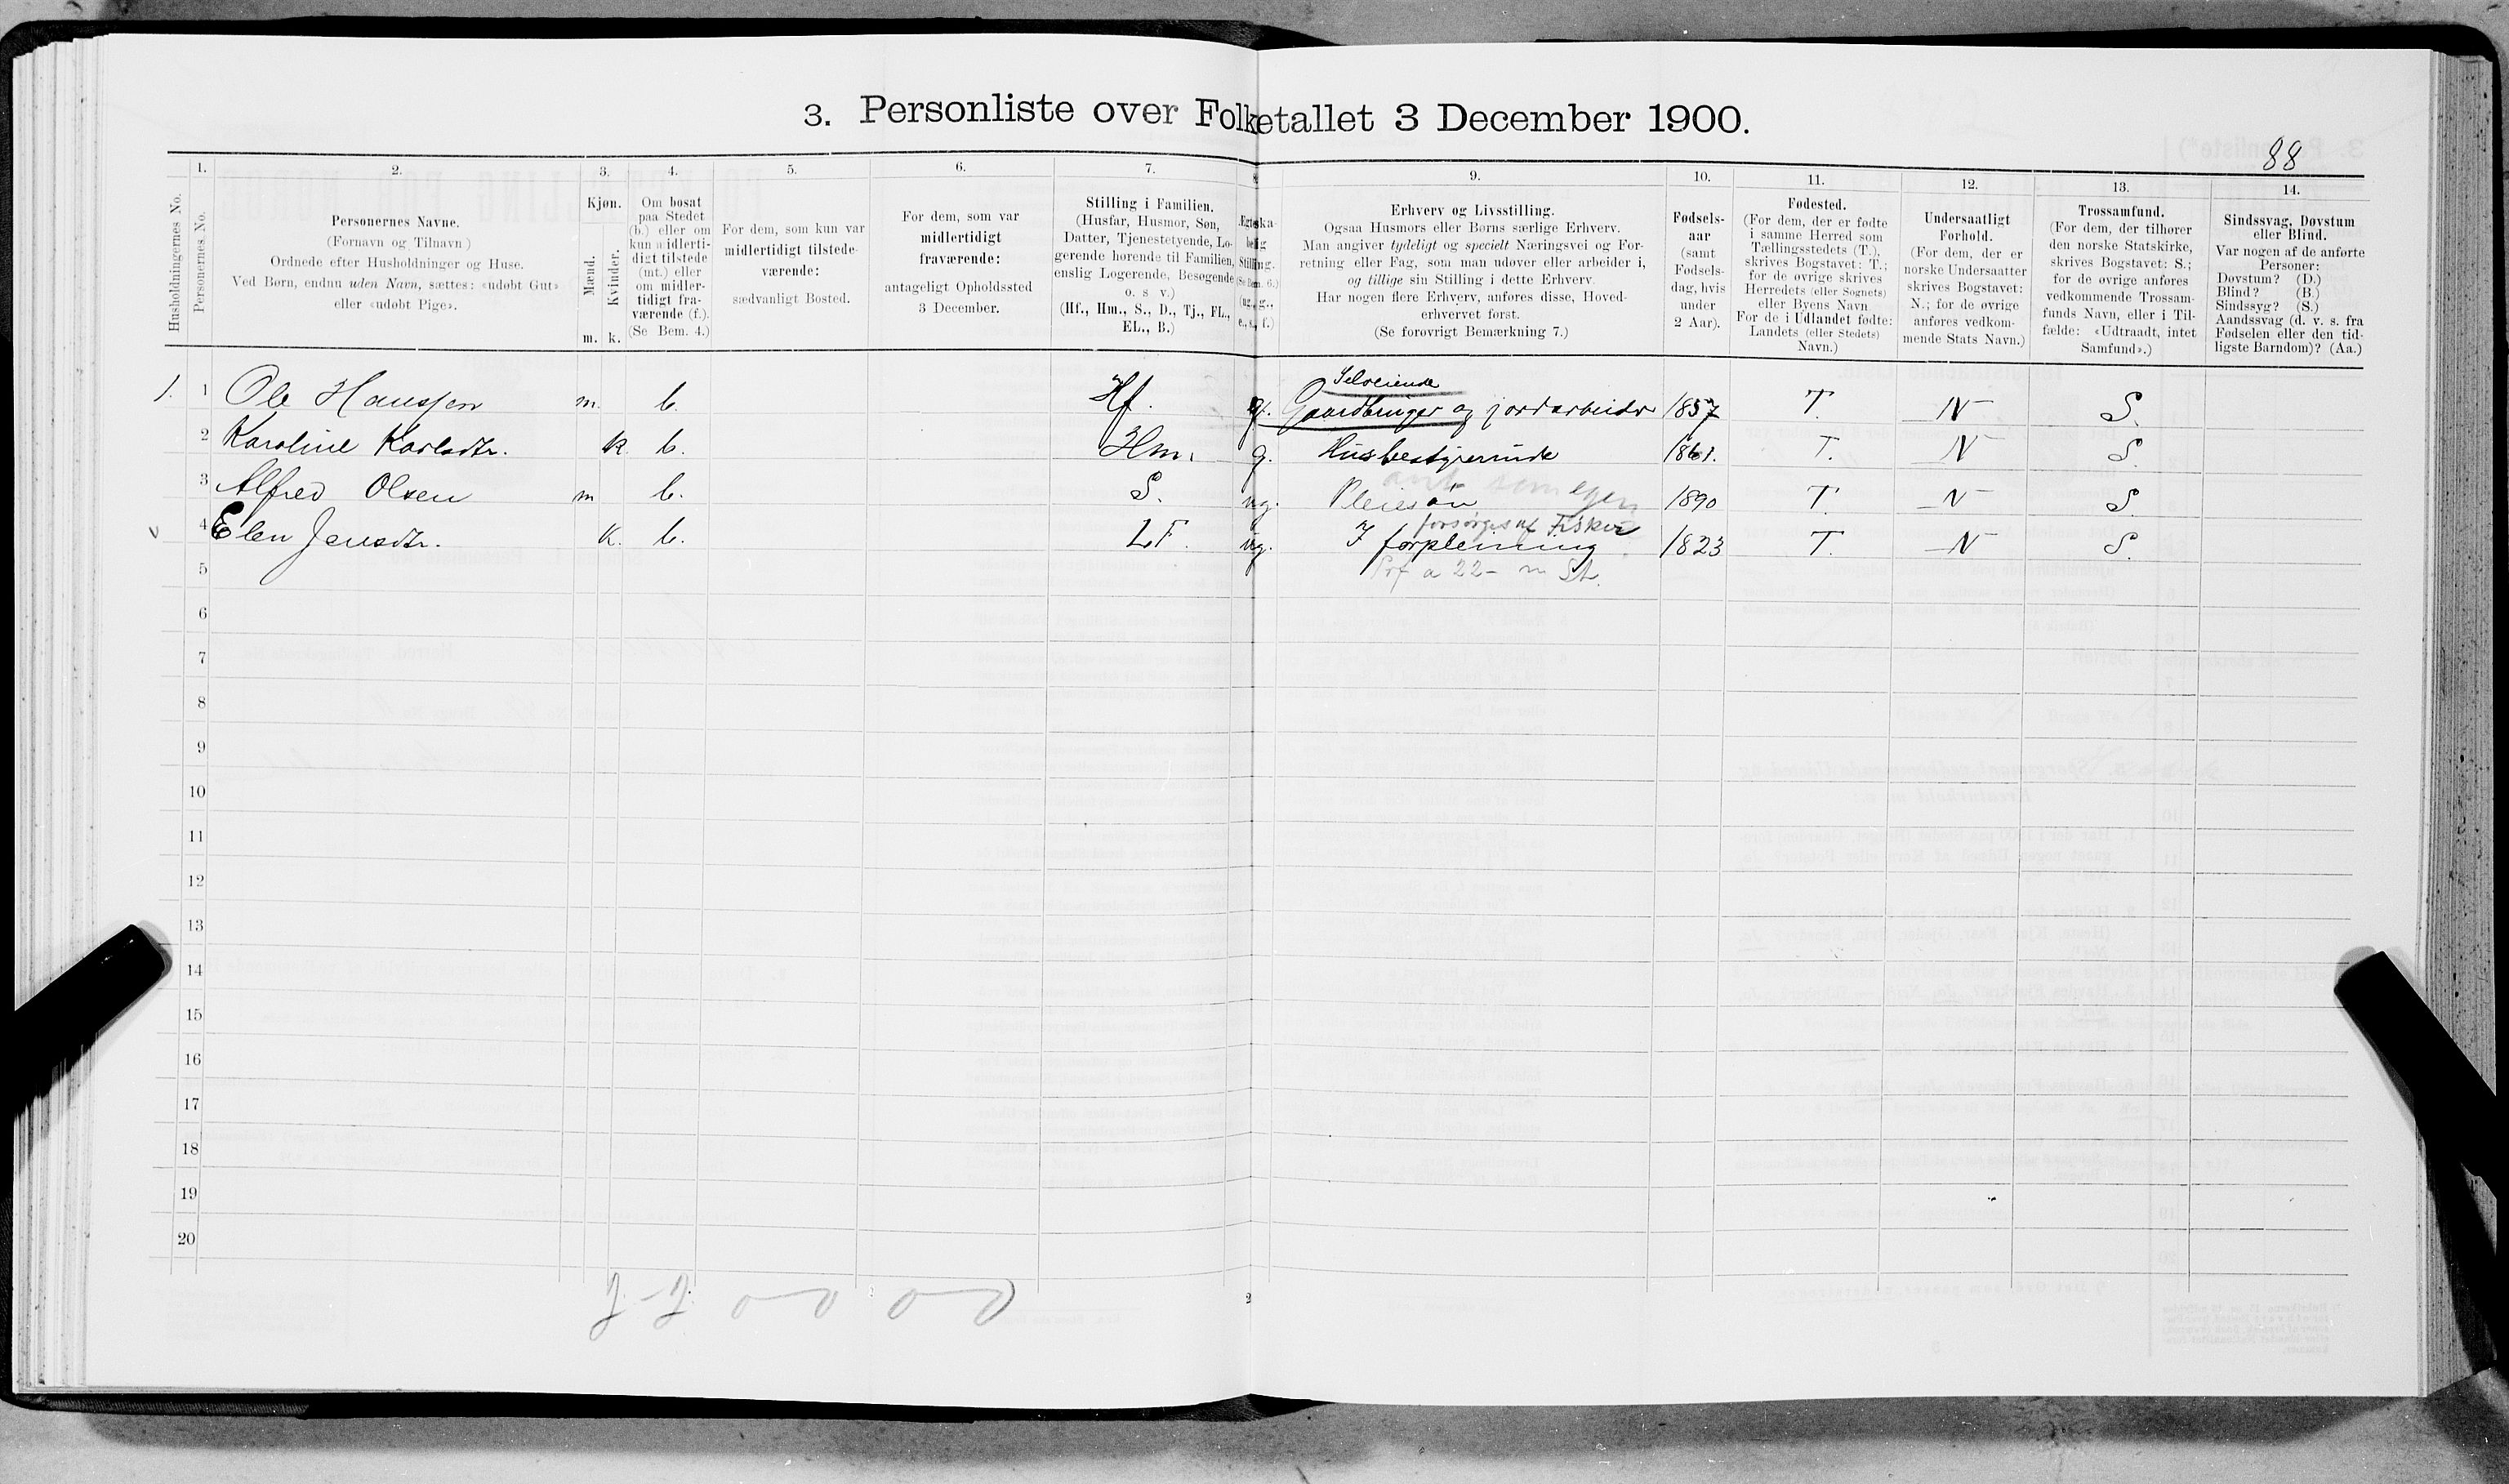 3. Personliste over Folketallet 3 December 1900.
88
1. 2. 3. 4. 5. 6. 7. 9. 10. 11. 12. 13. 14.
Husholdningernes No.
Personernes No.
Personernes Navne.
(Fornavn og Tilnavn)
Ordnede efter Husholdninger og Huse.
Ved Børn, endnu uden Navn, sættes: «udøbt Gut»
eller «udøbt Pige».
Kjøn.
Mænd.
Kvinder.
m. k.
Om bosat
paa Stedet
(b.) eller om
kun midlerti-
digt tilstede
(mt.) eller
om midler-
tidigt fra-
værende (f.).
(Se Bem. 4.)
For dem, som kun var
midlertidigt tilstede-
værende:
sædvanligt Bosted.
For dem, som var
midlertidigt
fraværende:
antageligt Opholdssted
3 December.
Stilling i Familien.
(Husfar, Husmor, Søn,
Datter, Tjenestetyende, Lo-
gerende hørende til Familien,
enslig Logerende, Besøgende
o. s v.)
(Hf., Hm., S., D., Tj., FL.,
EL., B.)
Ægteska-
belig
Stilling.
(Se Bem. 6.)
(ug., g.,
e., s., f.)
Erhverv og Livsstilling.
Ogsaa Husmors eller Børns særlige Erhverv.
Man angiver tydeligt og specielt Næringsvei og For-
retning eller Fag, som man udøver eller arbeider i,
og tillige sin Stilling i dette Erhverv.
Har nogen flere Erhverv, anføres disse, Hoved-
erhvervet først.
(Se forøvrigt Bemærkning 7.)
Fødsels-
aar
(samt
Fødsels-
dag, hvis
under
2 Aar).
Fødested.
(For dem, der er fødte
i samme Herred som
Tællingsstedets (T.),
skrives Bogstavet: T.;
for de øvrige skrives
Herredets (eller Sognets)
eller Byens Navn
For de i Udlandet fødte:
Landets (eller Stedets)
Navn.)
Undersaatligt
Forhold.
(For dem, der er
norske Undersaatter
skrives Bogstavet:
N.; for de øvrige
anføres vedkom-
mende Stats Navn.)
Trossamfund.
(For dem, der tilhører
den norske Statskirke,
skrives Bogstavet: S.;
for de øvrige anføres
vedkommende Trossam-
funds Navn, eller i Til-
fælde: «Udtraadt, intet
Samfund».)
Sindssvag, Døvstum
eller Blind.
Var nogen af de anførte
Personer:
Døvstum? (D.)
Blind? (B.)
Sindssyg? (S.)
Aandssvag (d. v. s. fra
Fødselen eller den tid-
ligste Barndom)? (Aa.)
Selveiende
1. 1 Ole Hanssen m. b. Hf. g. Gaardbruger og jordarbeider 1857 T. N S.
2 Karoline Karlsdtr. k. b. Hm. g. Husbestyrerinde 1861. T. N S.
ant som egen
3 Alfred Olsen m b. S. ug. Pleiesøn 1890 T. N S.
forsørges af Fisker
4 Elen Jensdtr. k. b. LF. ug. I forpleining 1823 T. N S.
5
6
7
8
9
10
11
12
13
14
15
16
17
18
19
20
2